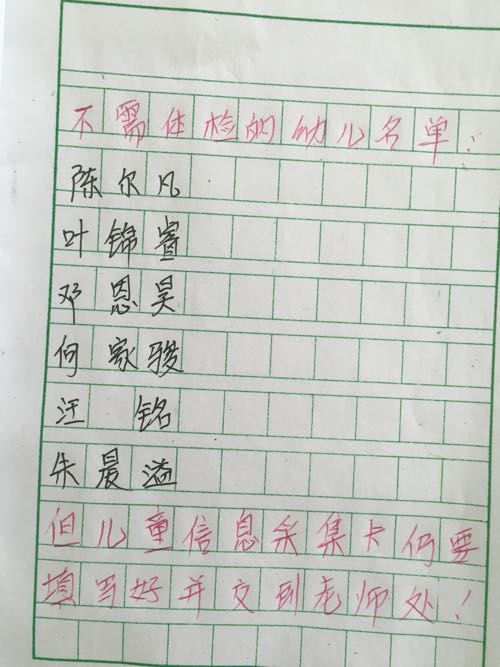 不需体检的幼儿名单：
陈尔凡
叶锦睿
邓恩昊
何家骏
汪铭
朱晨溢
但儿童信息采集卡仍要
填写好并交到老师处！